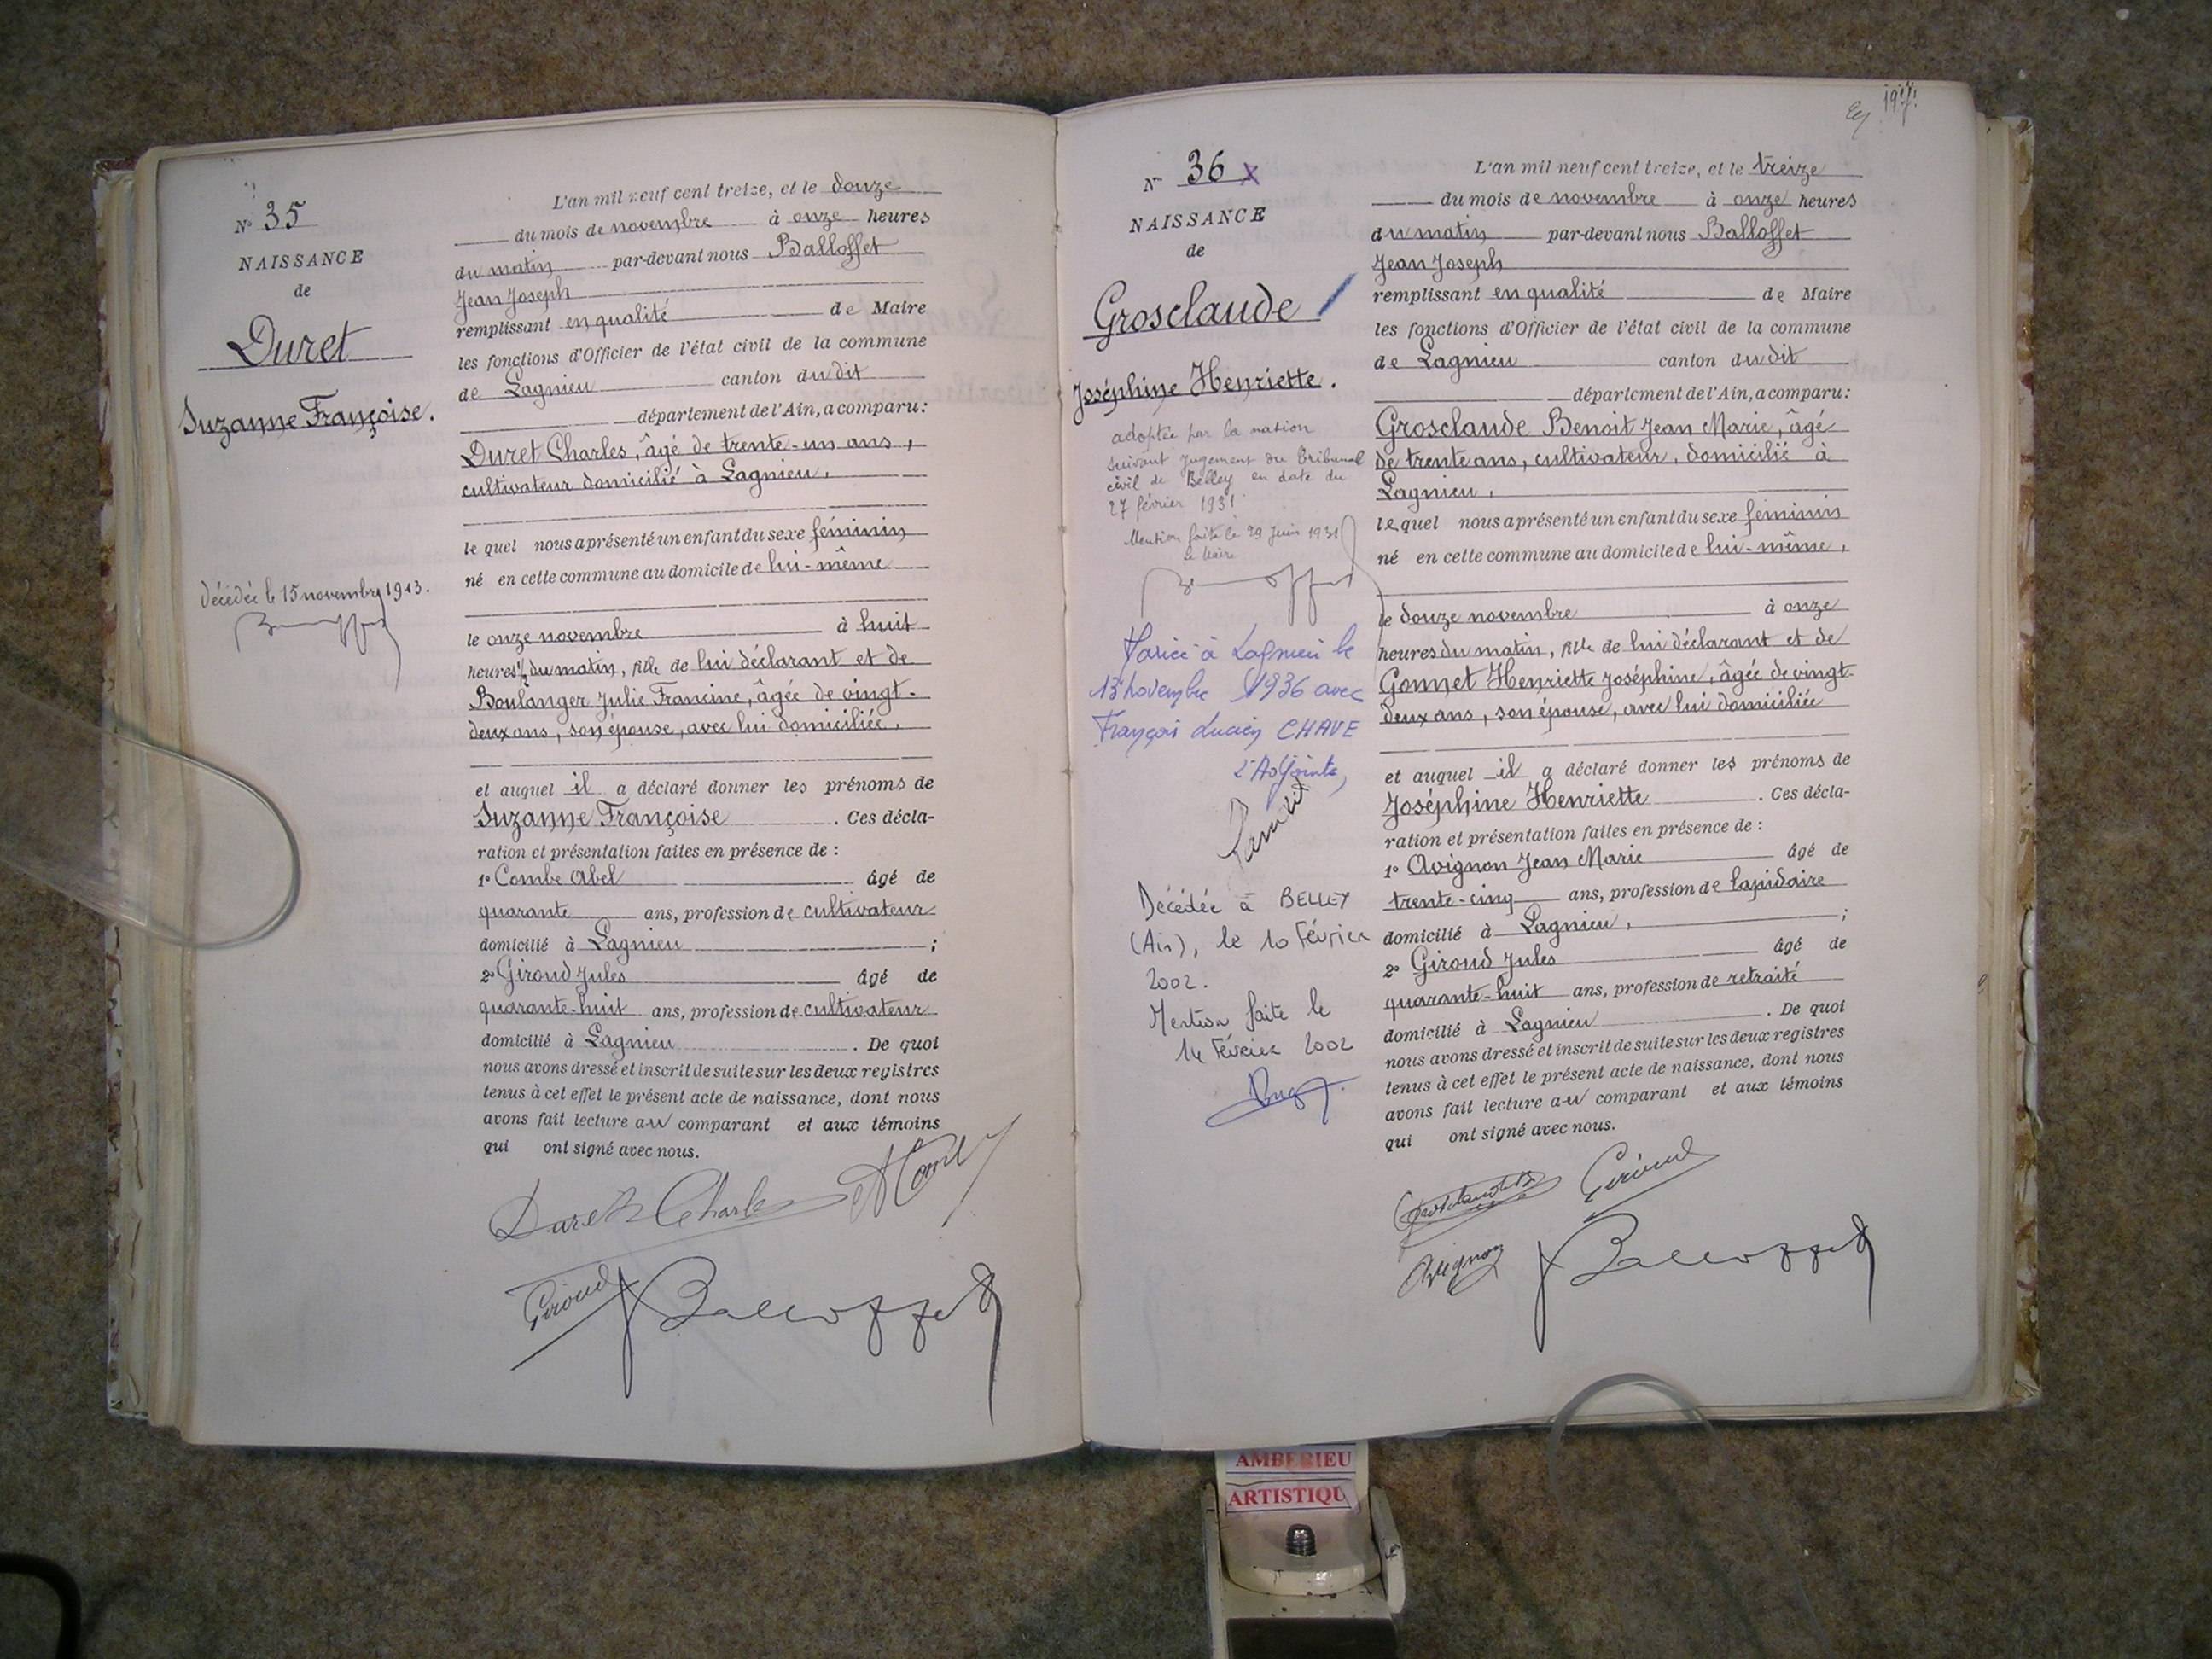 N° 35
NAISSANCE
de
Duret
Suzanne Françoise.
décédée le 15 novembre 1913.
L'an mil neuf cent treize, et le douze
du mois de novembre à onze heures
du matin par-devant nous Balloffet
Jean Joseph
remplissant en qualité de Maire
les fonctions d'Officier de l'état civil de la commune
de Lagnieu canton du dit
département de l'Ain, a comparu:
Duret Charles, âgé de trente-un ans,
cultivateur domicilié à Lagnieu,
le quel nous a présenté un enfant du sexe féminin
né en cette commune au domicile de lui-même
le onze novembre à huit
heures 1/2 du matin, fille de lui déclarant et de
Boulanger Julie Francine, âgée de vingt-
deux ans, son épouse, avec lui domiciliée,
et auquel il a déclaré donner les prénoms de
Suzanne Françoise. Ces décla-
ration et présentation faites en présence de :
1° Combe Abel âgé de
quarante ans, profession de cultivateur
domicilié à Lagnieu ;
2° Giroud Jules âgé de
quarante-huit ans, profession de cultivateur
domicilié à Lagnieu. De quoi
nous avons dressé et inscrit de suite sur les deux registres
tenus à cet effet le présent acte de naissance, dont nous
avons fait lecture au comparant et aux témoins
qui ont signé avec nous.
Duret Charles
Giroud Balloffet
197.
N° 36 x
NAISSANCE
de
Grosclaude
Joséphine Henriette.
adoptée par la nation
suivant jugement du Tribunal
civil de Belley en date du
27 février 1931
Mention faite le 29 Juin 1931
le Maire
Mariée à Lagnieu le
13 novembre 1936 avec
François Lucien CHAVE
L'Adjoint,
Décédée à BELLEY
(Ain), le 10 Février
2002.
Mention faite le
14 Février 2002
L'an mil neuf cent treize, et le treize
du mois de novembre à onze heures
du matin par-devant nous Balloffet
Jean Joseph
remplissant en qualité de Maire
les fonctions d'Officier de l'état civil de la commune
de Lagnieu canton du dit
département de l'Ain, a comparu:
Grosclaude Benoit Jean Marie, âgé
de trente ans, cultivateur, domicilié à
Lagnieu,
le quel nous a présenté un enfant du sexe féminin
né en cette commune au domicile de lui-même,
le douze novembre à onze
heures du matin, fille de lui déclarant et de
Gonnet Henriette Joséphine, âgée de vingt-
deux ans, son épouse, avec lui domiciliée
et auquel il a déclaré donner les prénoms de
Joséphine Henriette. Ces décla-
ration et présentation faites en présence de :
1° Avignon Jean Marie âgé de
trente-cinq ans, profession de lapidaire
domicilié à Lagnieu, ;
2° Giroud Jules âgé de
quarante-huit ans, profession de retraité
domicilié à Lagnieu. De quoi
nous avons dressé et inscrit de suite sur les deux registres
tenus à cet effet le présent acte de naissance, dont nous
avons fait lecture au comparant et aux témoins
qui ont signé avec nous.
Giroud
Avignon Balloffet
AMBERIEU
ARTISTIQU